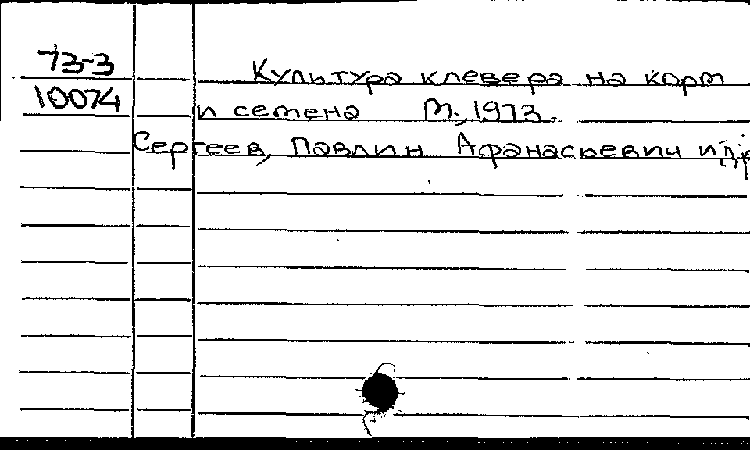 73-3
Культура клевера на корм
10074
и семена М., 1973.
Сергеев, Павлин Афанасьевич и др